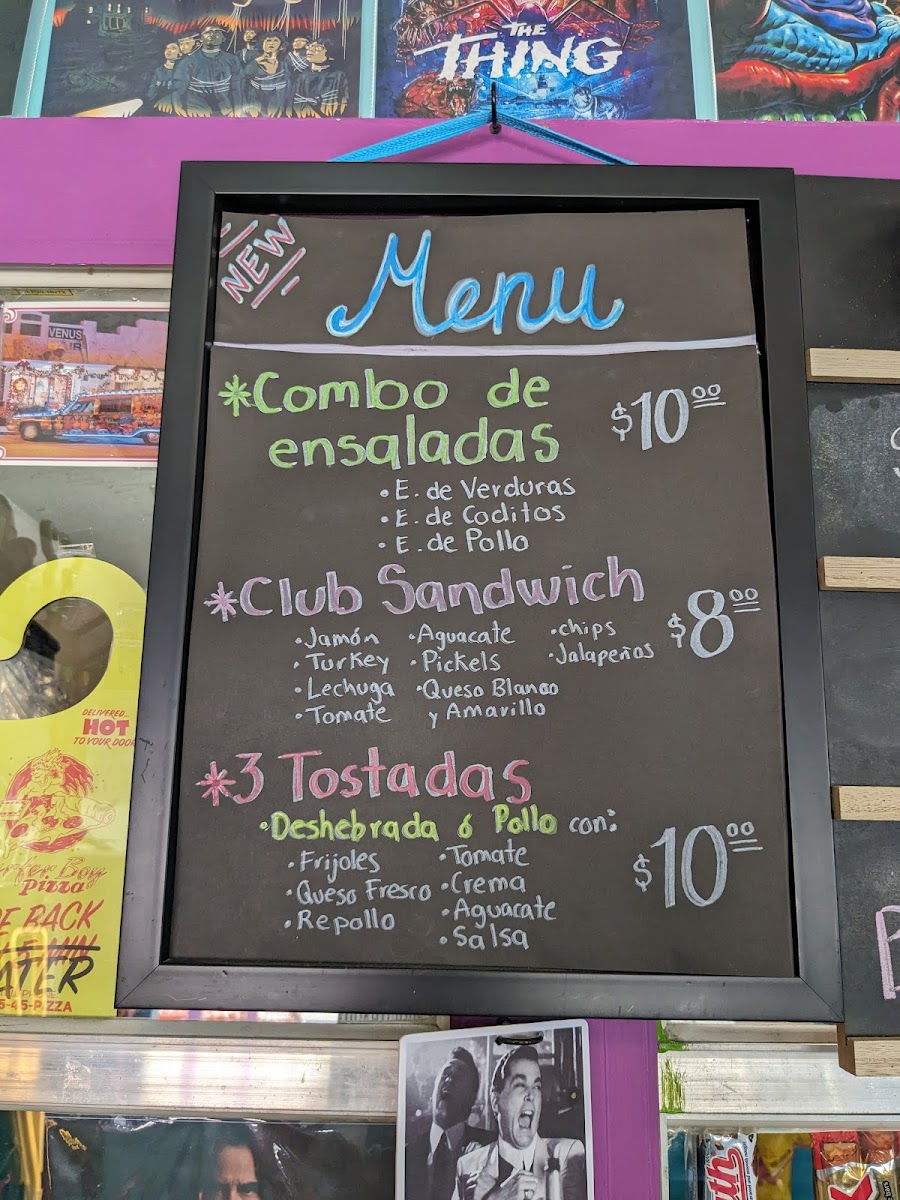 THE
THING
VENUS
NEW
Menu
*Combo de
ensaladas
$10.00
• E. de Verduras
• E. de Coditos
• E. de Pollo
*Club Sandwich
$8.00
• Jamón • Aguacate • chips
• Turkey • Pickels • Jalapeños
• Lechuga • Queso Blanco
• Tomate y Amarillo
*3 Tostadas
• Deshebrada ó Pollo con:
$10.00
• Frijoles • Tomate
• Queso Fresco • Crema
• Repollo • Aguacate
• Salsa
DELIVERED...
HOT
TO YOUR DOOR
Pizza
BACK
45-PIZZA